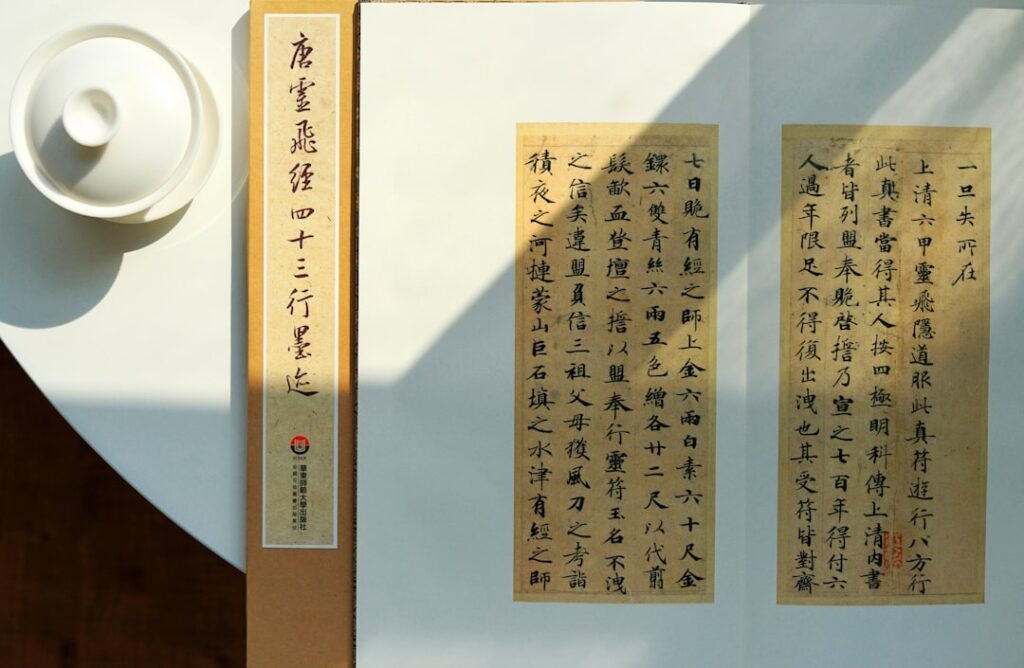 唐靈飛經四十三行墨迹
華東師範大學出版社
一旦失所在
上清六甲靈飛隱道服此真符遊行八方行
此真書當得其人按四極明科傳上清內書
者皆列盟奉貺啓擔乃宣之七百年得付六
人過年限足不得復出洩也其受符皆對齋
七日貺有經之師上金六兩白素六十尺金
鐶六雙青絲六兩五色繒各廿二尺以代翦
髮歃血登壇之擔以盟奉行靈符玉名不洩
之信矣違盟負信三祖父母獲風刀之考詣
積夜之河揵蒙山巨石填之水津有經之師